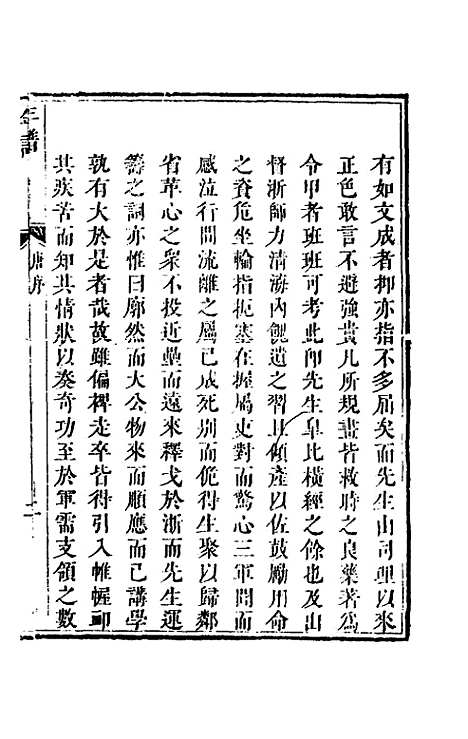 有如文成者抑亦指不多屈矣而先生由司理以來
正色敢言不避強貴凡所規畫皆救時之良藥著爲
令甲者班班可考此卽先生皐比橫經之餘也及出
督浙師力清海內餽遺之習且傾產以佐鼓勵用命
之資危坐輪指扼塞在握屬吏對而驚心三軍聞而
感泣行間流離之屬已成死別而俛得生聚以歸鄰
省革心之衆不投近壘而遠來釋戈於浙而先生運
籌之詞亦惟曰廓然而大公物來而順應而已講學
孰有大於是者哉故雖偏裨走卒皆得引入帷幄卽
其疾苦而知其情狀以奏奇功至於軍需支領之數
年譜
唐序
二